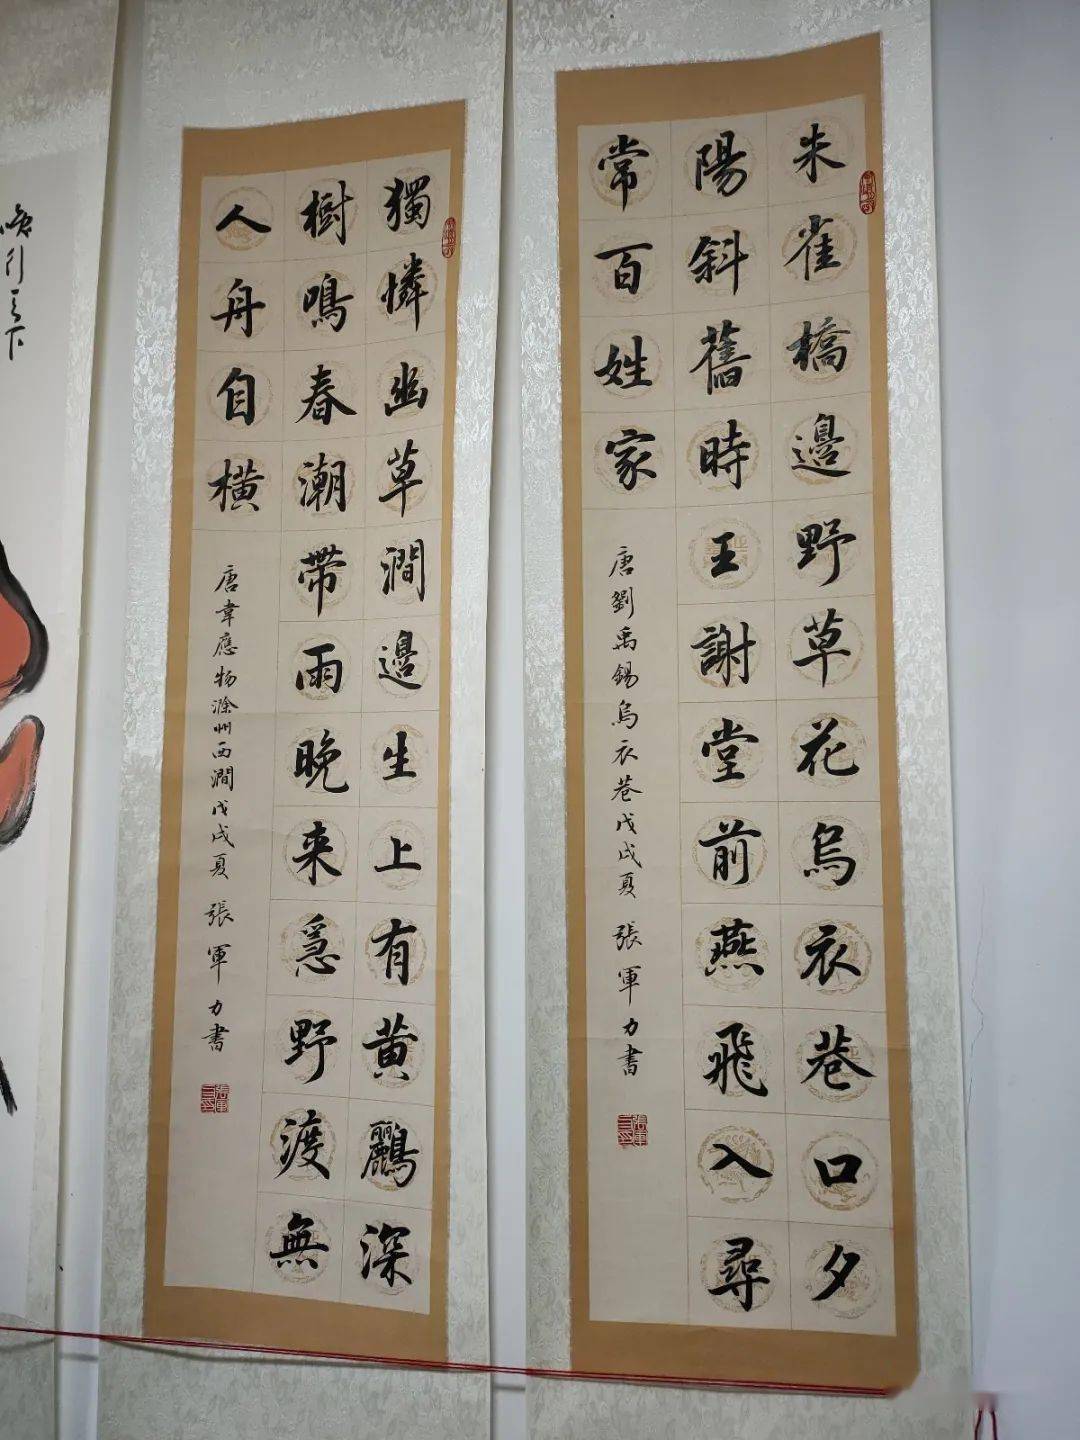 朱雀橋邊野草花烏衣巷口夕
陽斜舊時王謝堂前燕飛入尋
常百姓家
唐劉禹錫烏衣巷戊戌夏 張軍力書
獨憐幽草澗邊生上有黃鸝深
樹鳴春潮帶雨晚来急野渡無
人舟自橫
唐韋應物滁州西澗戊戌夏 張軍力書
行天下